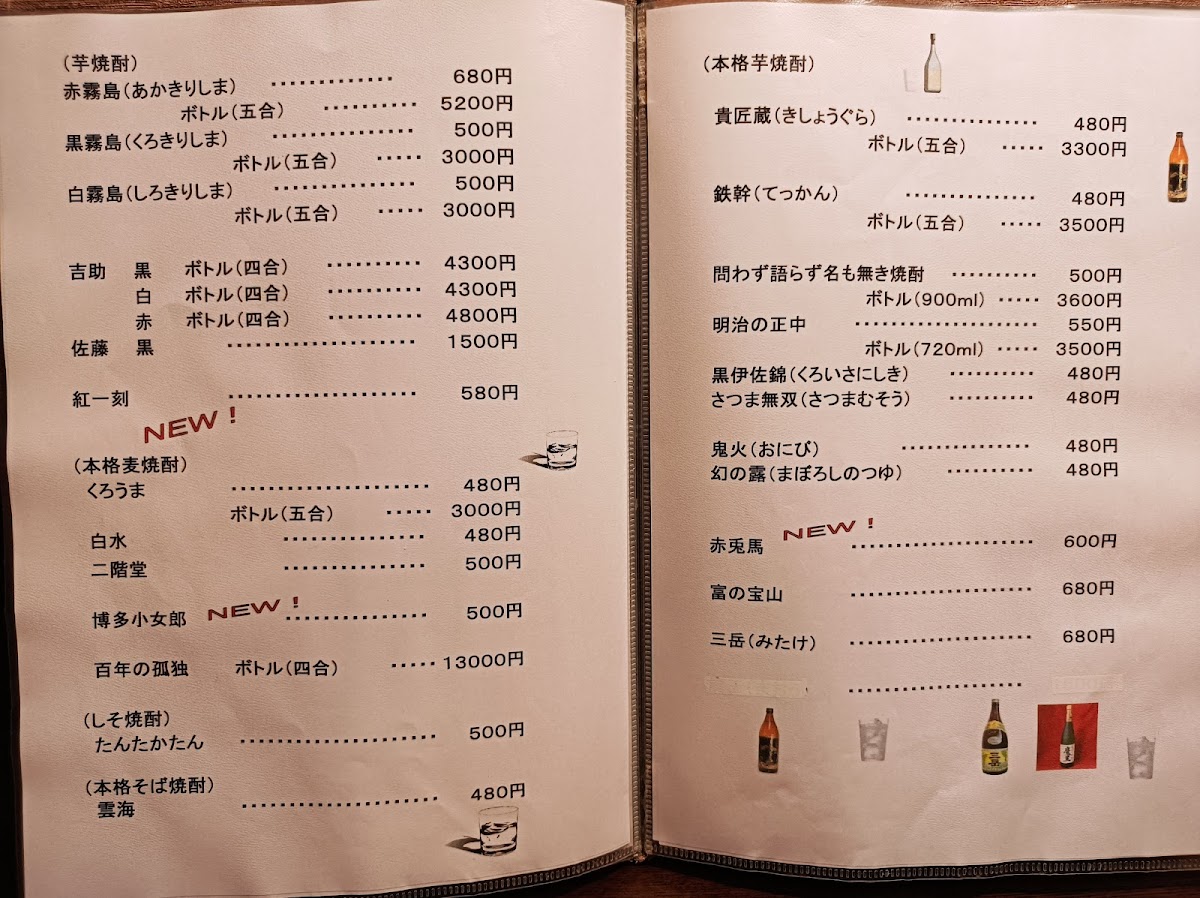 (芋焼酎)
赤霧島(あかきりしま) ‥‥‥‥‥‥‥ 680円
ボトル(五合) ‥‥‥‥‥ 5200円
黒霧島(くろきりしま) ‥‥‥‥‥‥‥ 500円
ボトル(五合) ‥‥‥ 3000円
白霧島(しろきりしま) ‥‥‥‥‥‥‥ 500円
ボトル(五合) ‥‥‥ 3000円
吉助 黒 ボトル(四合) ‥‥‥‥‥ 4300円
白 ボトル(四合) ‥‥‥‥‥ 4300円
赤 ボトル(四合) ‥‥‥‥‥ 4800円
佐藤 黒 ‥‥‥‥‥‥‥‥‥‥ 1500円
紅一刻 ‥‥‥‥‥‥‥‥‥‥ 580円
NEW!
(本格麦焼酎)
くろうま ‥‥‥‥‥‥‥‥‥‥ 480円
ボトル(五合) ‥‥‥ 3000円
白水 ‥‥‥‥‥‥‥ 480円
二階堂 ‥‥‥‥‥‥‥ 500円
博多小女郎 NEW! ‥‥‥‥‥‥‥ 500円
百年の孤独 ボトル(四合) ‥‥‥ 13000円
(しそ焼酎)
たんたかたん ‥‥‥‥‥‥‥‥‥‥ 500円
(本格そば焼酎)
雲海 ‥‥‥‥‥‥‥‥‥‥ 480円
(本格芋焼酎)
貴匠蔵(きしょうぐら) ‥‥‥‥‥‥‥ 480円
ボトル(五合) ‥‥‥ 3300円
鉄幹(てっかん) ‥‥‥‥‥‥‥ 480円
ボトル(五合) ‥‥‥ 3500円
問わず語らず名も無き焼酎 ‥‥‥‥‥ 500円
ボトル(900ml) ‥‥‥ 3600円
明治の正中 ‥‥‥‥‥‥‥‥‥‥ 550円
ボトル(720ml) ‥‥‥ 3500円
黒伊佐錦(くろいさにしき) ‥‥‥‥‥ 480円
さつま無双(さつまむそう) ‥‥‥‥‥ 480円
鬼火(おにび) ‥‥‥‥‥‥‥ 480円
幻の露(まぼろしのつゆ) ‥‥‥‥‥ 480円
NEW!
赤兎馬 ‥‥‥‥‥‥‥‥‥‥ 600円
富の宝山 ‥‥‥‥‥‥‥‥‥‥ 680円
三岳(みたけ) ‥‥‥‥‥‥‥‥‥‥ 680円
‥‥‥‥‥‥‥‥‥‥
三岳